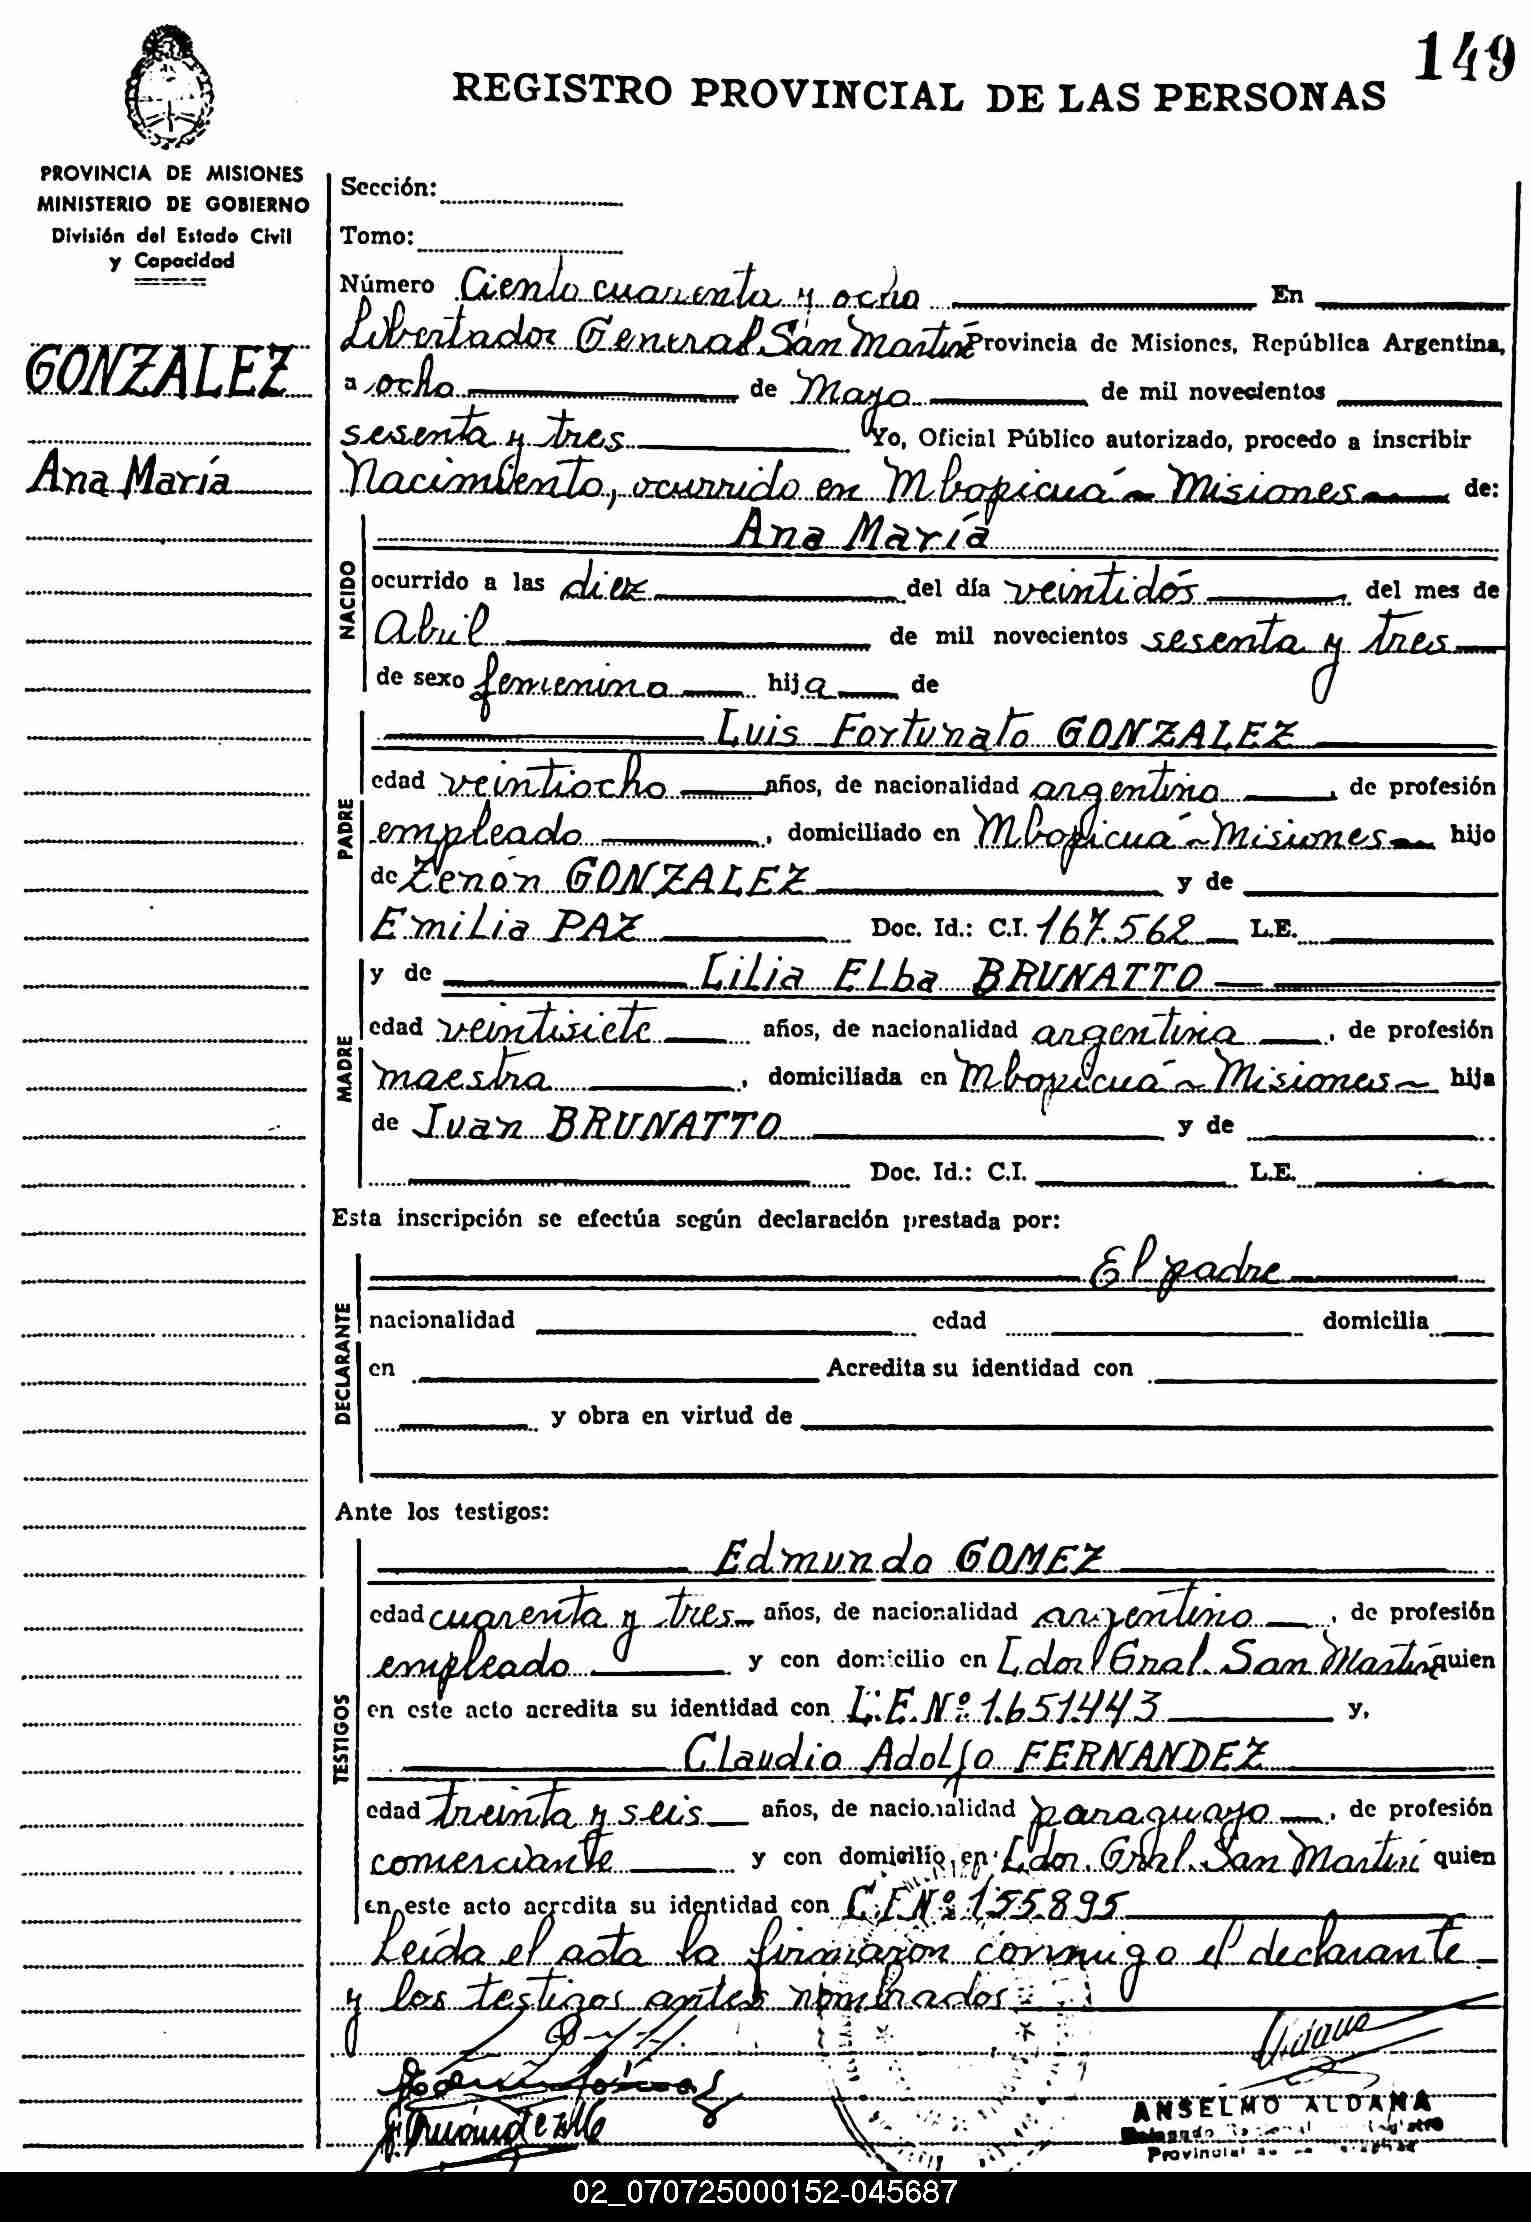 149
REGISTRO PROVINCIAL DE LAS PERSONAS
PROVINCIA DE MISIONES
MINISTERIO DE GOBIERNO
División del Estado Civil
y Capacidad
GONZALEZ
Ana María
Sección:
Tomo:
Número Ciento cuarenta y ocho En
Libertador General San Martín Provincia de Misiones, República Argentina,
a ocho de Mayo de mil novecientos
sesenta y tres Yo, Oficial Público autorizado, procedo a inscribir
Nacimiento, ocurrido en Mbopicuá - Misiones de:
NACIDO
Ana María
ocurrido a las diez del día veintidós del mes de
Abril de mil novecientos sesenta y tres
de sexo femenino hija de
PADRE
Luis Fortunato GONZALEZ
edad veintiocho años, de nacionalidad argentino, de profesión
empleado, domiciliado en Mbopicuá - Misiones hijo
de Zenón GONZALEZ y de
Emilia PAZ Doc. Id.: C.I. 167.562 L.E.
MADRE
y de Lilia Elba BRUNATTO
edad veintisiete años, de nacionalidad argentina, de profesión
maestra, domiciliada en Mbopicuá - Misiones - hija
de Juan BRUNATTO y de
Doc. Id.: C.I. L.E.
Esta inscripción se efectúa según declaración prestada por:
DECLARANTE
El padre
nacionalidad edad domicilia
en Acredita su identidad con
y obra en virtud de
Ante los testigos:
TESTIGOS
Edmundo GOMEZ
edad cuarenta y tres años, de nacionalidad argentino, de profesión
empleado y con domicilio en Ldor Gral. San Martín quien
en este acto acredita su identidad con L.E.Nº 1.651.443 y,
Claudio Adolfo FERNANDEZ
edad treinta y seis años, de nacionalidad paraguayo, de profesión
comerciante y con domicilio en Ldor. Gral. San Martín quien
en este acto acredita su identidad con C.I.Nº 155.895
Leída el acta la firmaron conmigo el declarante
y los testigos antes nombrados
Aldana
ANSELMO ALDANA
Delegado
Provincial de
02_070725000152-045687